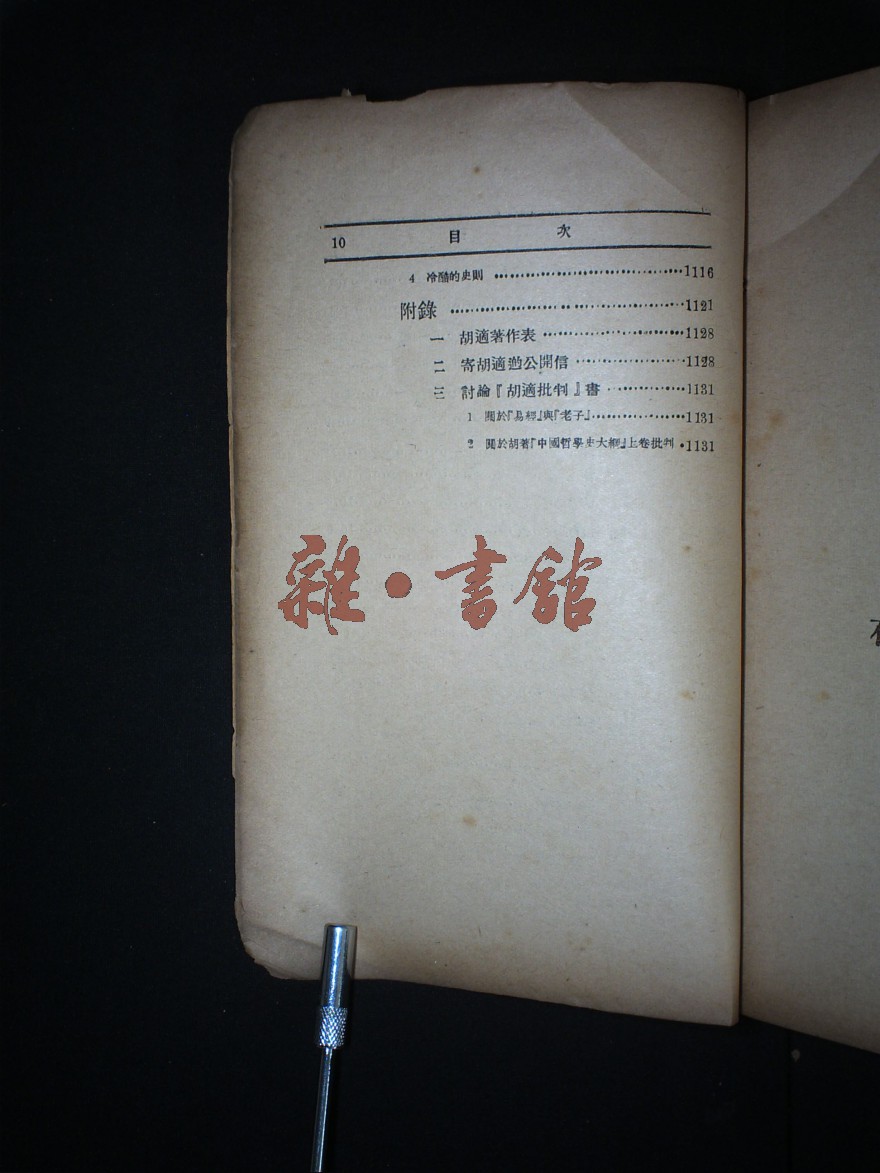 10 目 次
4 冷酷的史則 1116
附錄 1121
一 胡適著作表 1128
二 寄胡適的公開信 1128
三 討論『胡適批判』書 1131
1 關於『易經』與『老子』 1131
2 關於胡著『中國哲學史大綱』上卷批判 1131
雜·書館